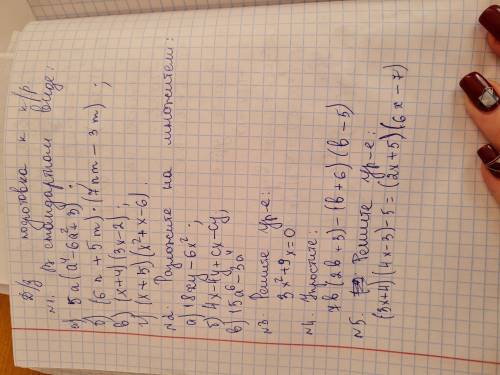 Д/з подготовка к к/р.
№1. В стандартном виде:
а) 5a(a⁴-6a²+3);
б) (6n+5m)·(7nm-3m);
в) (x+4)(3x-2);
г) (x+5)(x²+x-6).
№2. Разложите на множители:
а) 18xy-6x²;
б) 4x-4y+cx-cy;
в) 15a⁶-3a⁴
№3. Решите ур-е:
3x²+9x=0
№4. Упростите:
7b(2b+3)-(b+6)(b-5)
№5. Решите ур-е:
(3x+4)(4x-3)-5=(2x+5)(6x-7)